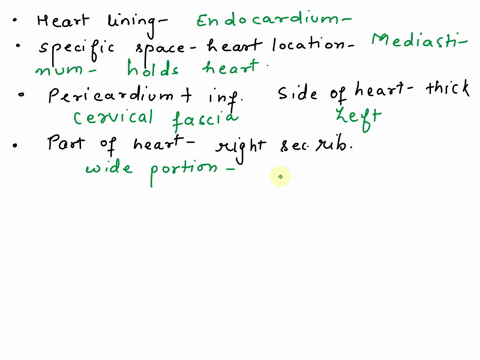 • Heart lining- Endocardium-
• specific space - heart location- Mediasti-
num- holds heart.
• Pericardium + inf. Side of heart- thick
Cervical fascia Left
• Part of heart- right sec. rib.
wide portion -